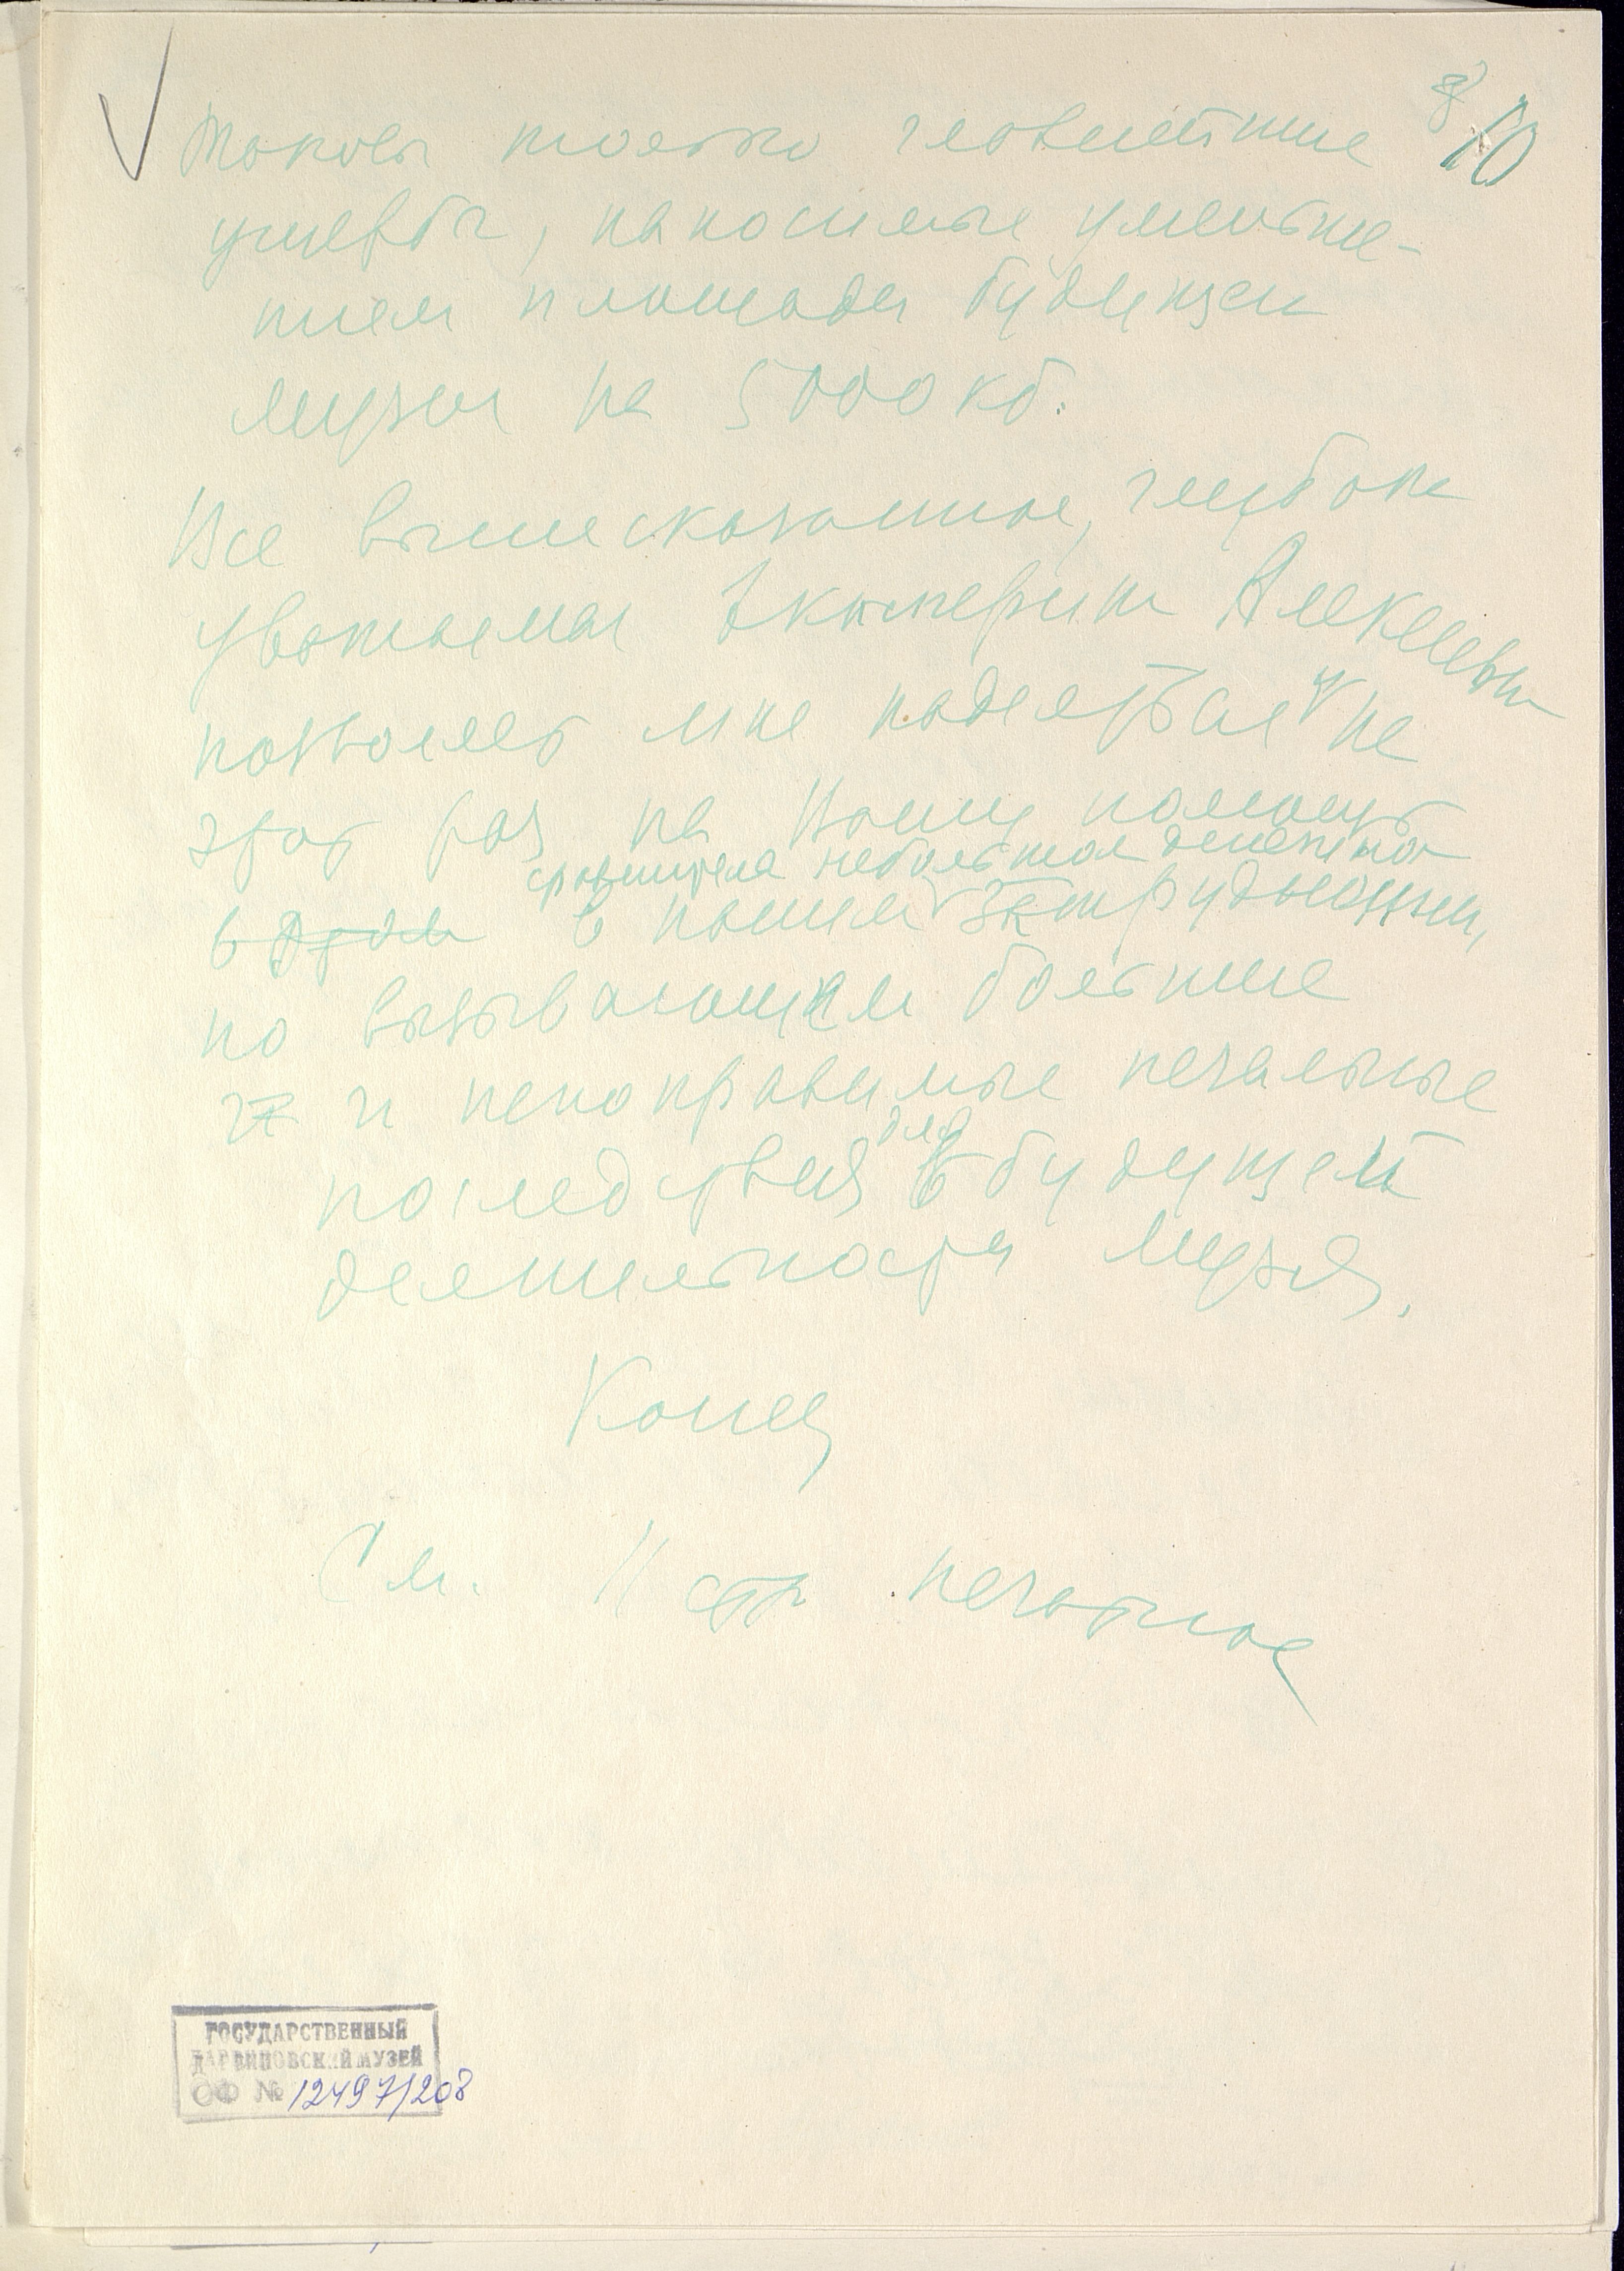 10
Таковы только главнейшие
ущербы, наносимые уменьше-
нием площади будущего
музея на 5000 кб.
Все вышесказанное, глубоко
уважаемая Екатерина Алексеевна
позволяет мне надеяться и на
этот раз на Вашу помощь
сравнительно небольшом денежно
в этом в нашем затруднении,
но вызывающем большие
и и непоправимые печальные
последствия для в будущей
деятельности музея.
Конец
См. 11 стр печатное
ГОСУДАРСТВЕННЫЙ
ДАРВИНОВСКИЙ МУЗЕЙ
ОФ № 12497/208